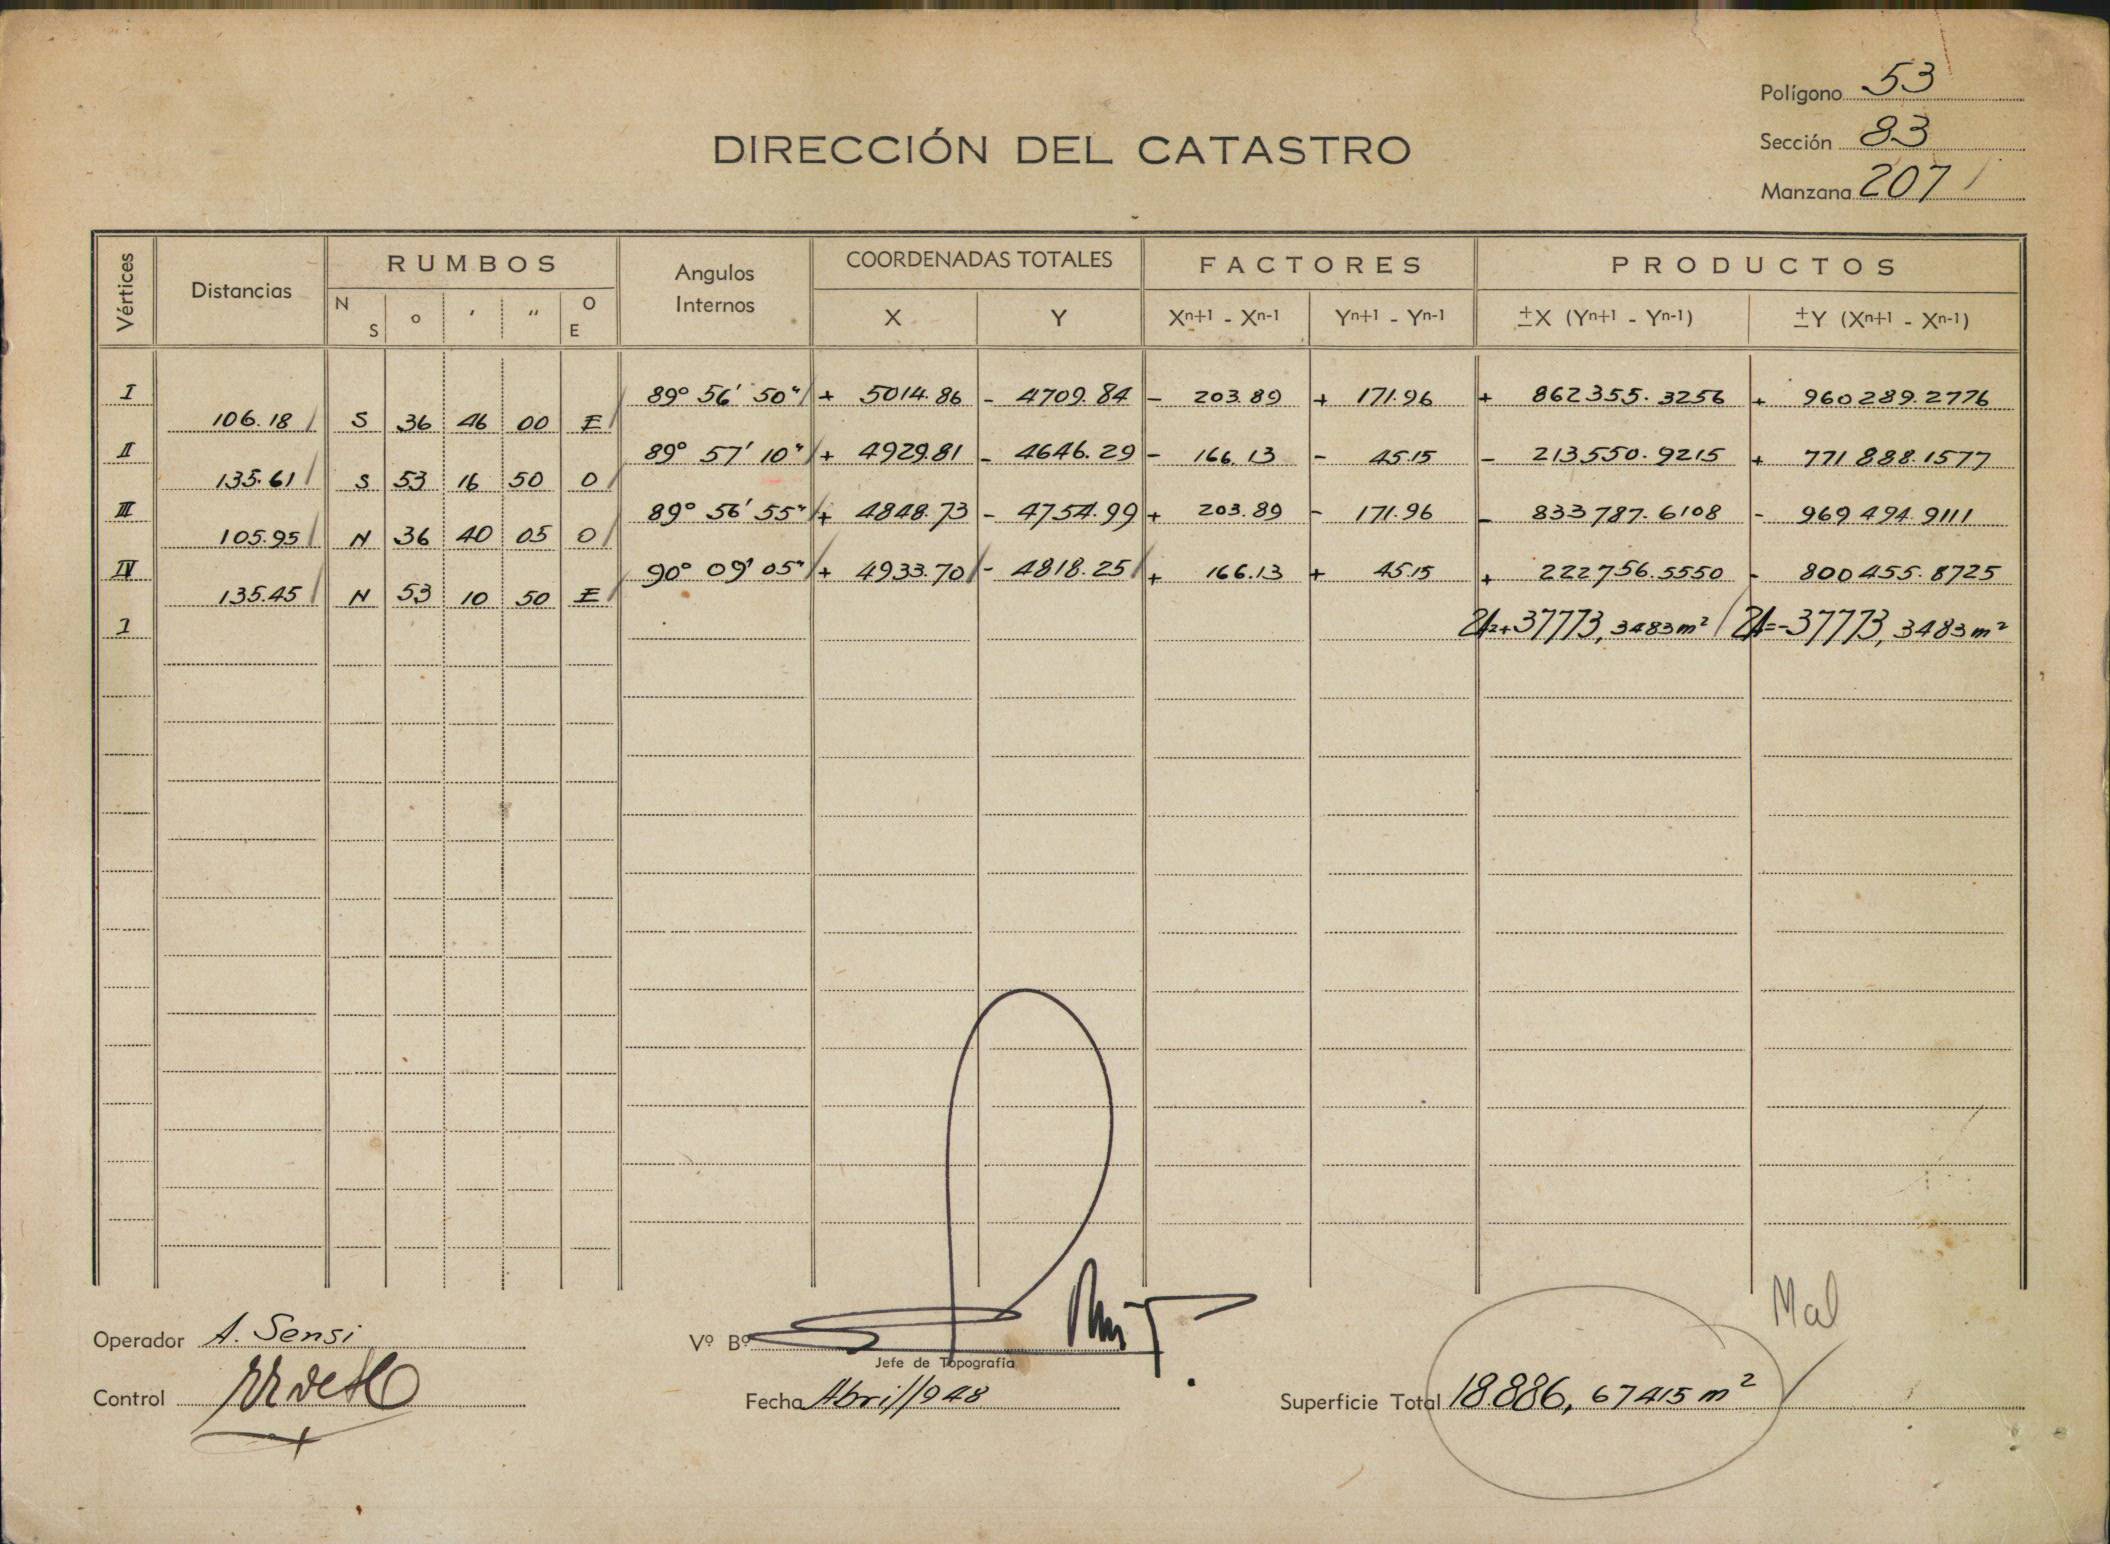 Polígono 53
DIRECCIÓN DEL CATASTRO
Sección 83
Manzana 207
Vértices Distancias RUMBOS Angulos Internos COORDENADAS TOTALES FACTORES PRODUCTOS
N S ° ′ ″ O E X Y Xⁿ⁺¹ - Xⁿ⁻¹ Yⁿ⁺¹ - Yⁿ⁻¹ ±X (Yⁿ⁺¹ - Yⁿ⁻¹) ±Y (Xⁿ⁺¹ - Xⁿ⁻¹)
I 89° 56′ 50″ + 5014.86 - 4709.84 - 203.89 + 171.96 + 862355.3256 + 960289.2776
106.18 S 36 46 00 E
II 89° 57′ 10″ + 4929.81 - 4646.29 - 166.13 - 45.15 - 213550.9215 + 771888.1577
135.61 S 53 16 50 O
III 89° 56′ 55″ + 4848.73 - 4754.99 + 203.89 - 171.96 - 833787.6108 - 969494.9111
105.95 N 36 40 05 O
IV 90° 09′ 05″ + 4933.70 - 4818.25 + 166.13 + 45.15 + 222756.5550 - 800455.8725
135.45 N 53 10 50 E
I +37773,3483 m² =-37773,3483 m²
Mal
Operador A. Sensi
Vº Bº
Jefe de Topografía
Control
Fecha Abril/948
Superficie Total 18.886,67415 m²